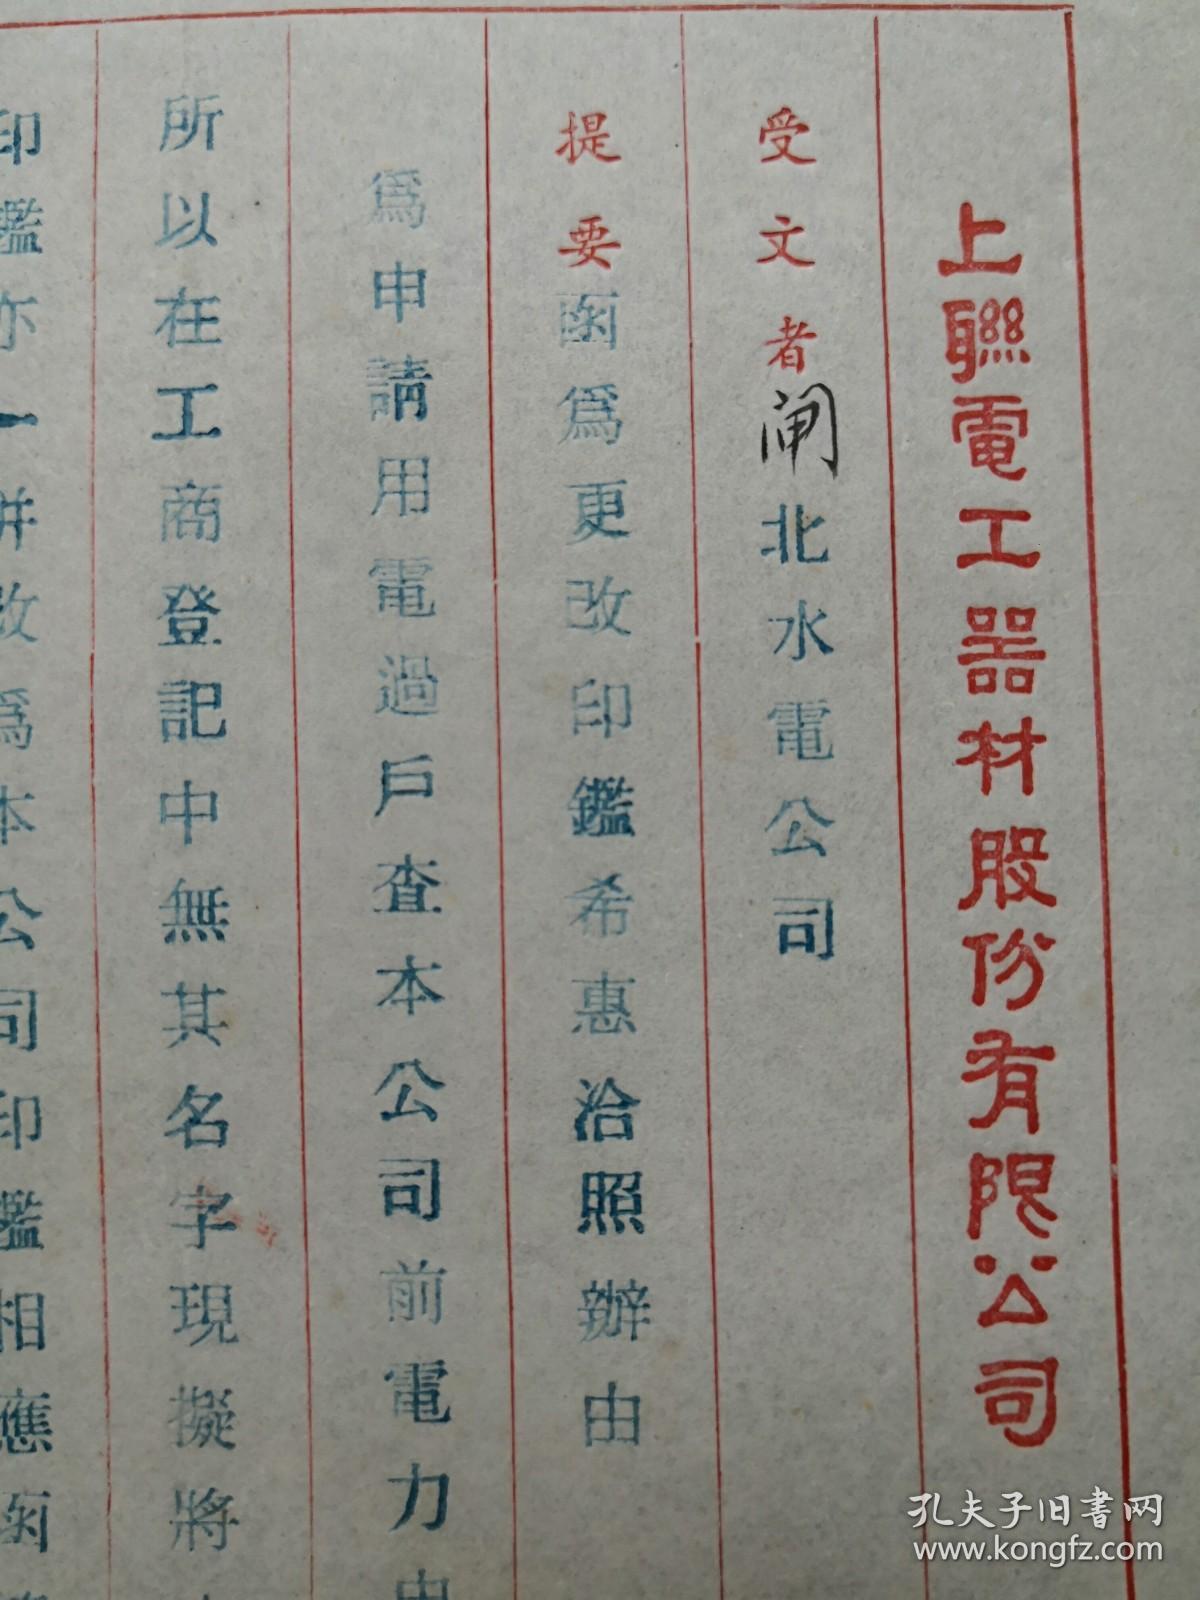 上聯電工器材股份有限公司
受文者闸北水電公司
提要函為更改印鑑希惠洽照辦由
為申請用電過戶查本公司前電力
所以在工商登記中無其名字現擬將
印鑑亦一併改為本公司印鑑相應函
孔夫子旧书网
www.kongfz.com